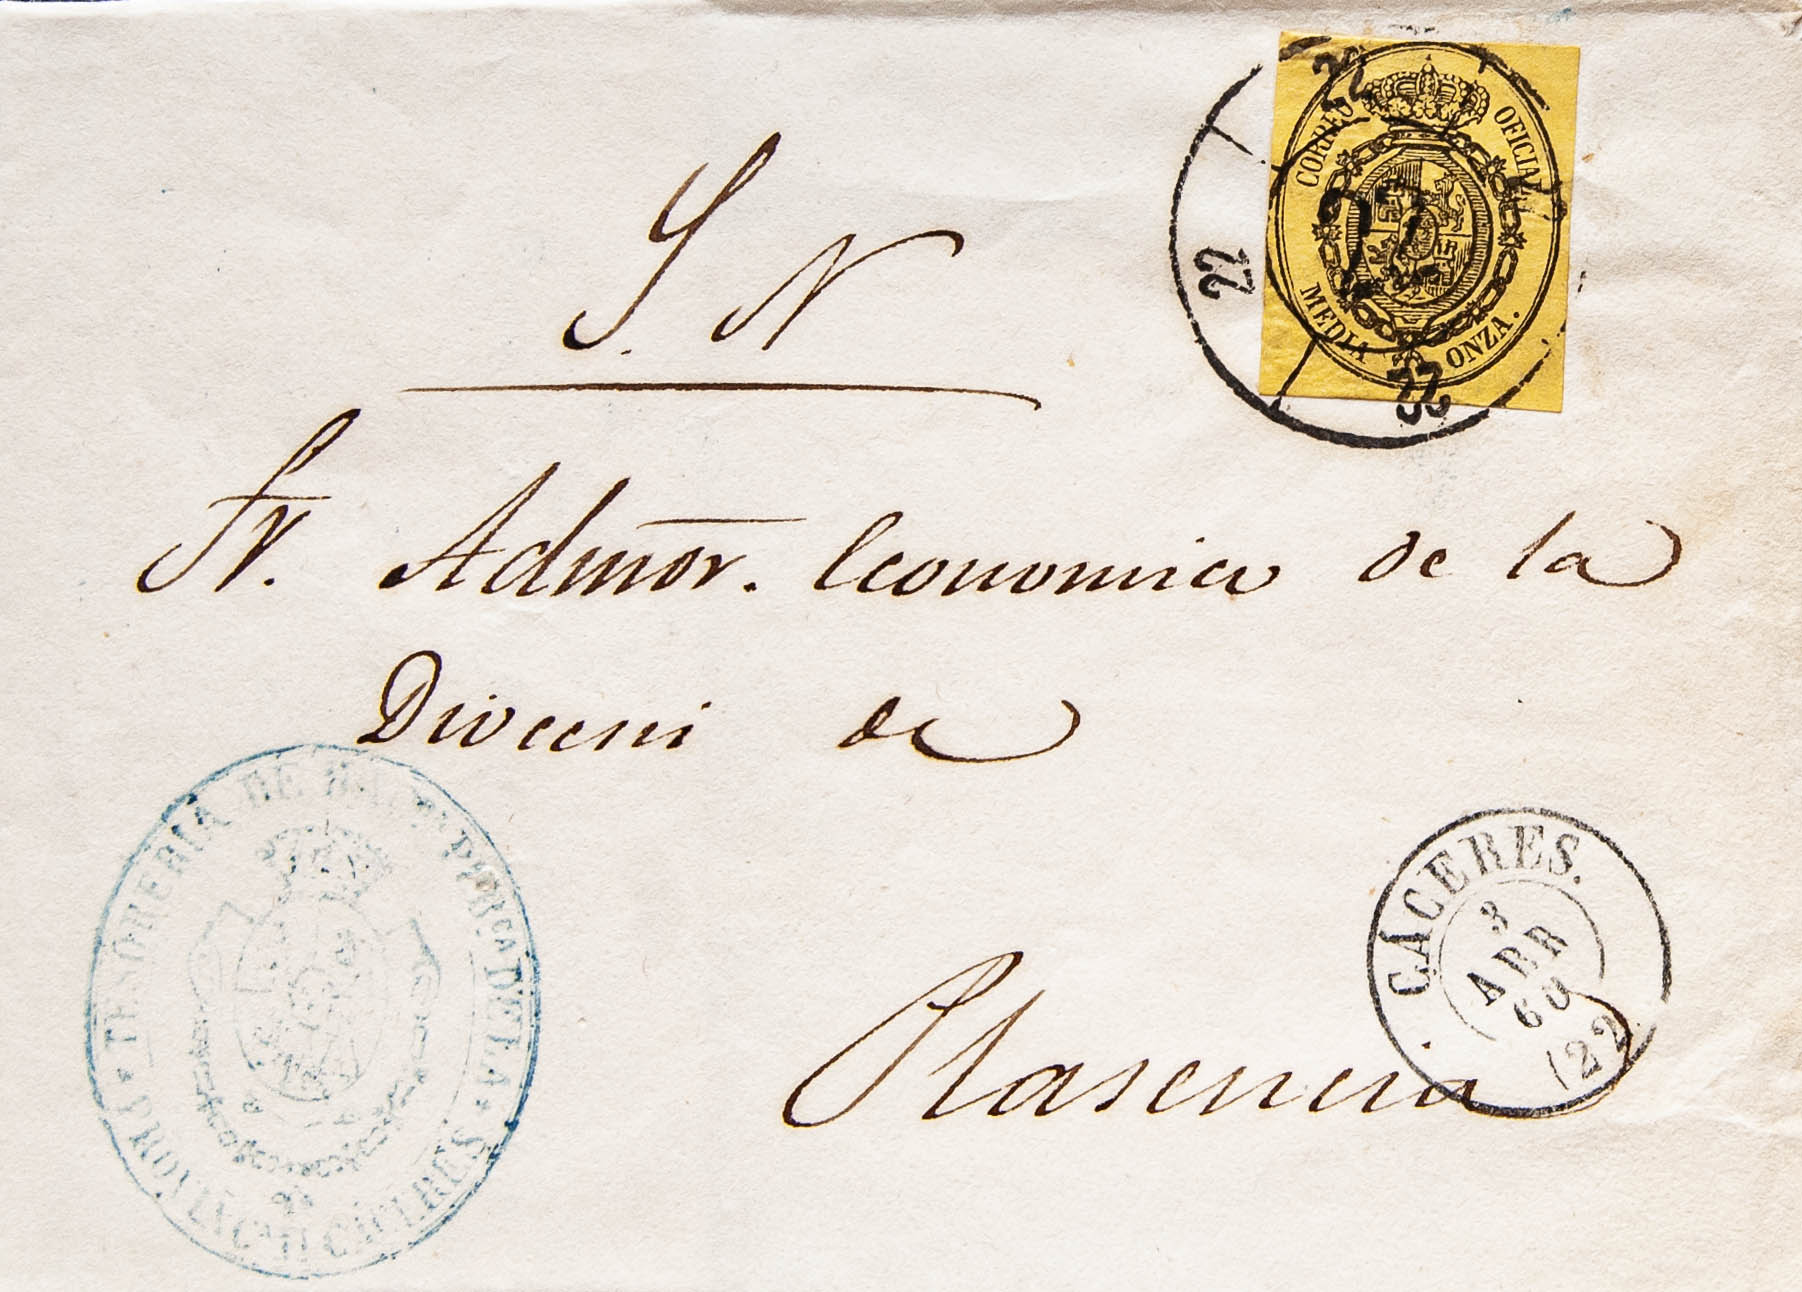 CORREO OFICIAL
MEDIA ONZA.
22
22
22
22
S. N
Sr. Admōr. Economico de la
Diocesis de
Plasencia
CÁCERES.
3
ABR
60
(22)
TESORERIA DE HACDA PPBCA DE LA
PROVINCA D CACERES